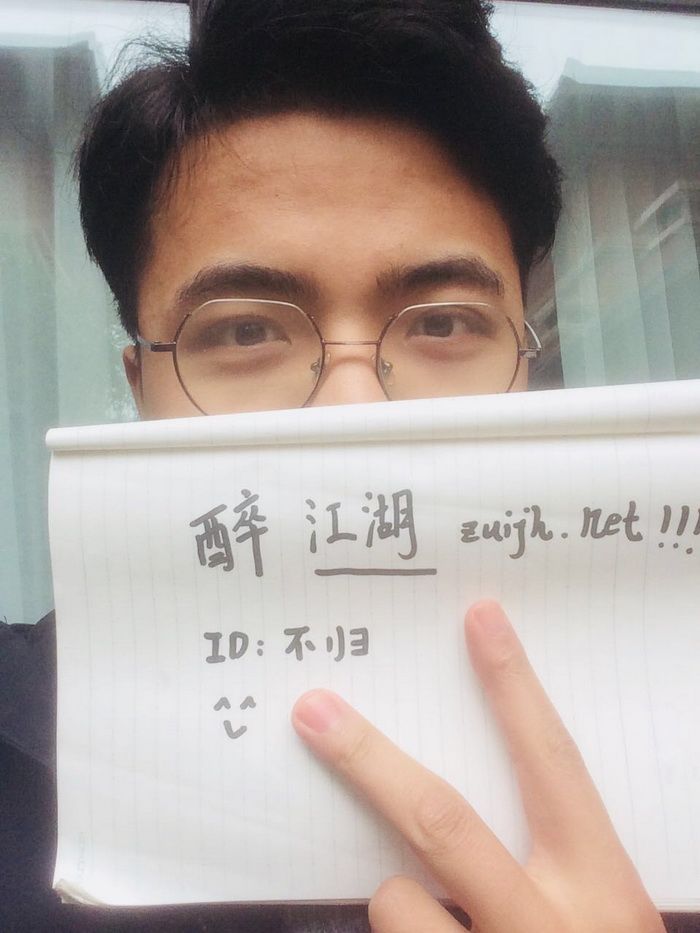 醉 江湖 zuijh.net!!!
ID: 不归